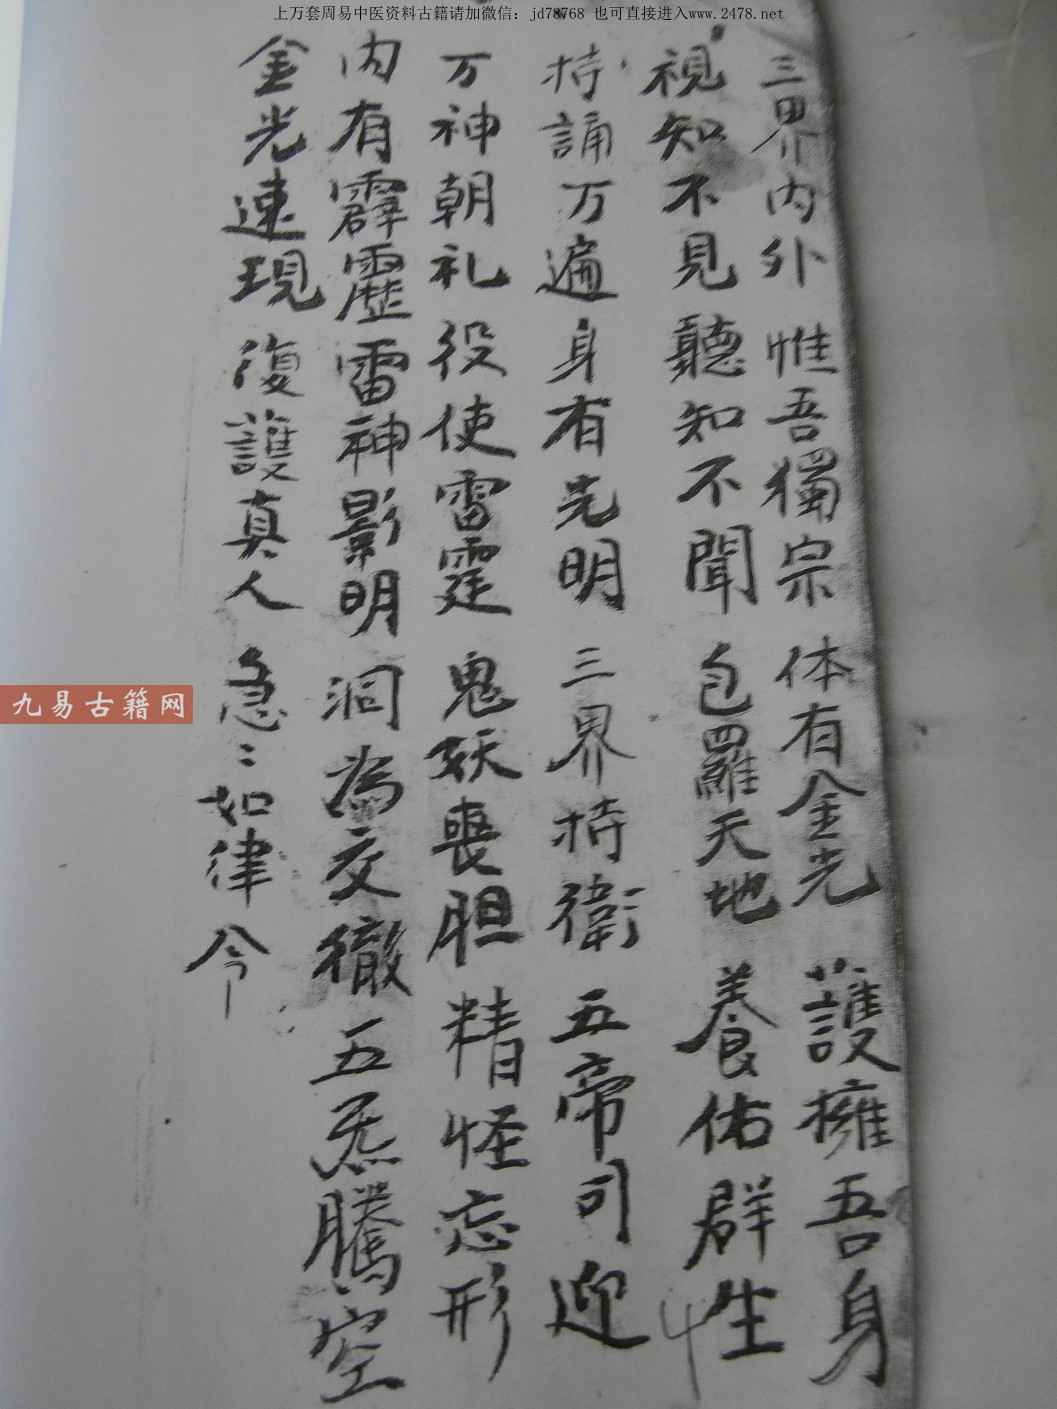 上万套周易中医资料古籍请加微信：jd78768 也可直接进入www.2478.net
三界内外 惟吾獨宗 体有金光 護擁吾身
視知不見 聽知不聞 包羅天地 養佑群生
持誦万遍 身有光明 三界持衛 五帝司迎
万神朝礼 役使雷霆 鬼妖喪胆 精怪忘形
内有霹靂 雷神影明 洞為交徹 五炁騰空
金光速現 復護真人 急〻如律令
九易古籍网